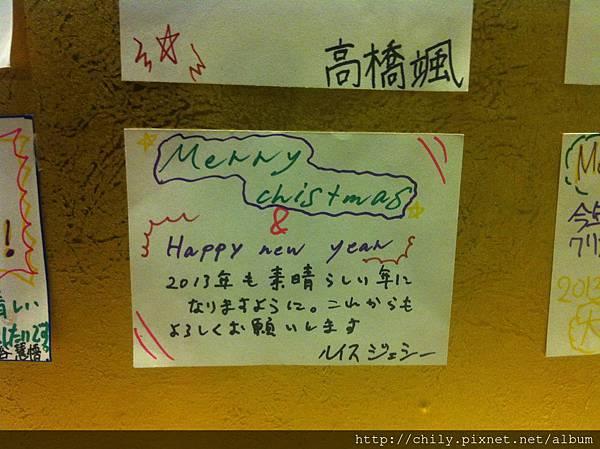 高橋颯
Merry
chistmas
&
Happy new year
2013年も素晴らしい年に
なりますように。これからも
よろしくお願いします
ルイス ジェシー
!
晴しい
したいです
谷慧悟
Me
今年
クリ
2013
大
http://chily.pixnet.net/album